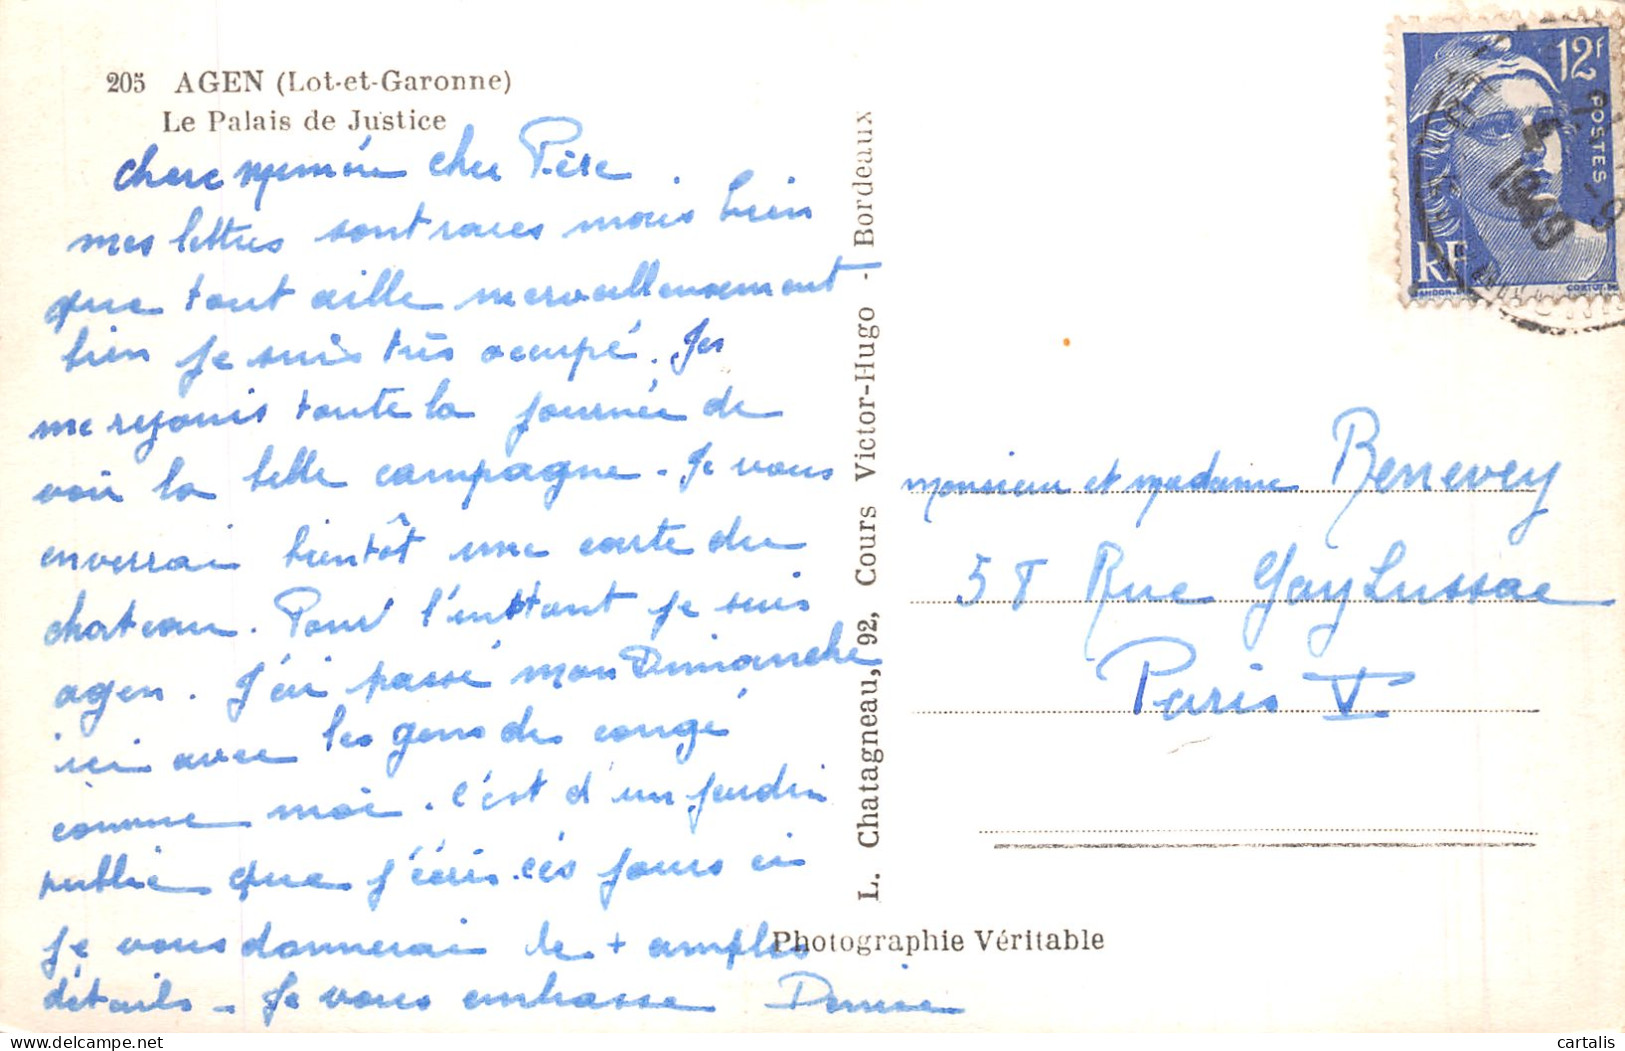 205 AGEN (Lot-et-Garonne)
Le Palais de Justice
chere mémée cher Père
mes lettres sont rares mais bien
que tout aille merveilleusement
bien je suis très occupé. Je
me rejouis toute la journée de
voir la belle campagne - Je vous
enverrai bientôt une carte du
chateau. Pour l'instant je suis
agen. J'ai passé mon Dimanche
ici avec les gens de congé
comme moi. C'est d'un jardin
public que j'écris. ces jours ci
je vous donnerai de + amples
détails - Je vous embrasse Denise
L. Chatagneau, 92, Cours Victor-Hugo - Bordeaux
Photographie Véritable
12F
POSTES
RF
GANDON
CORTOT
1949
monsieur et madame Benevey
58 Rue Gay Lussac
Paris V
cartalis